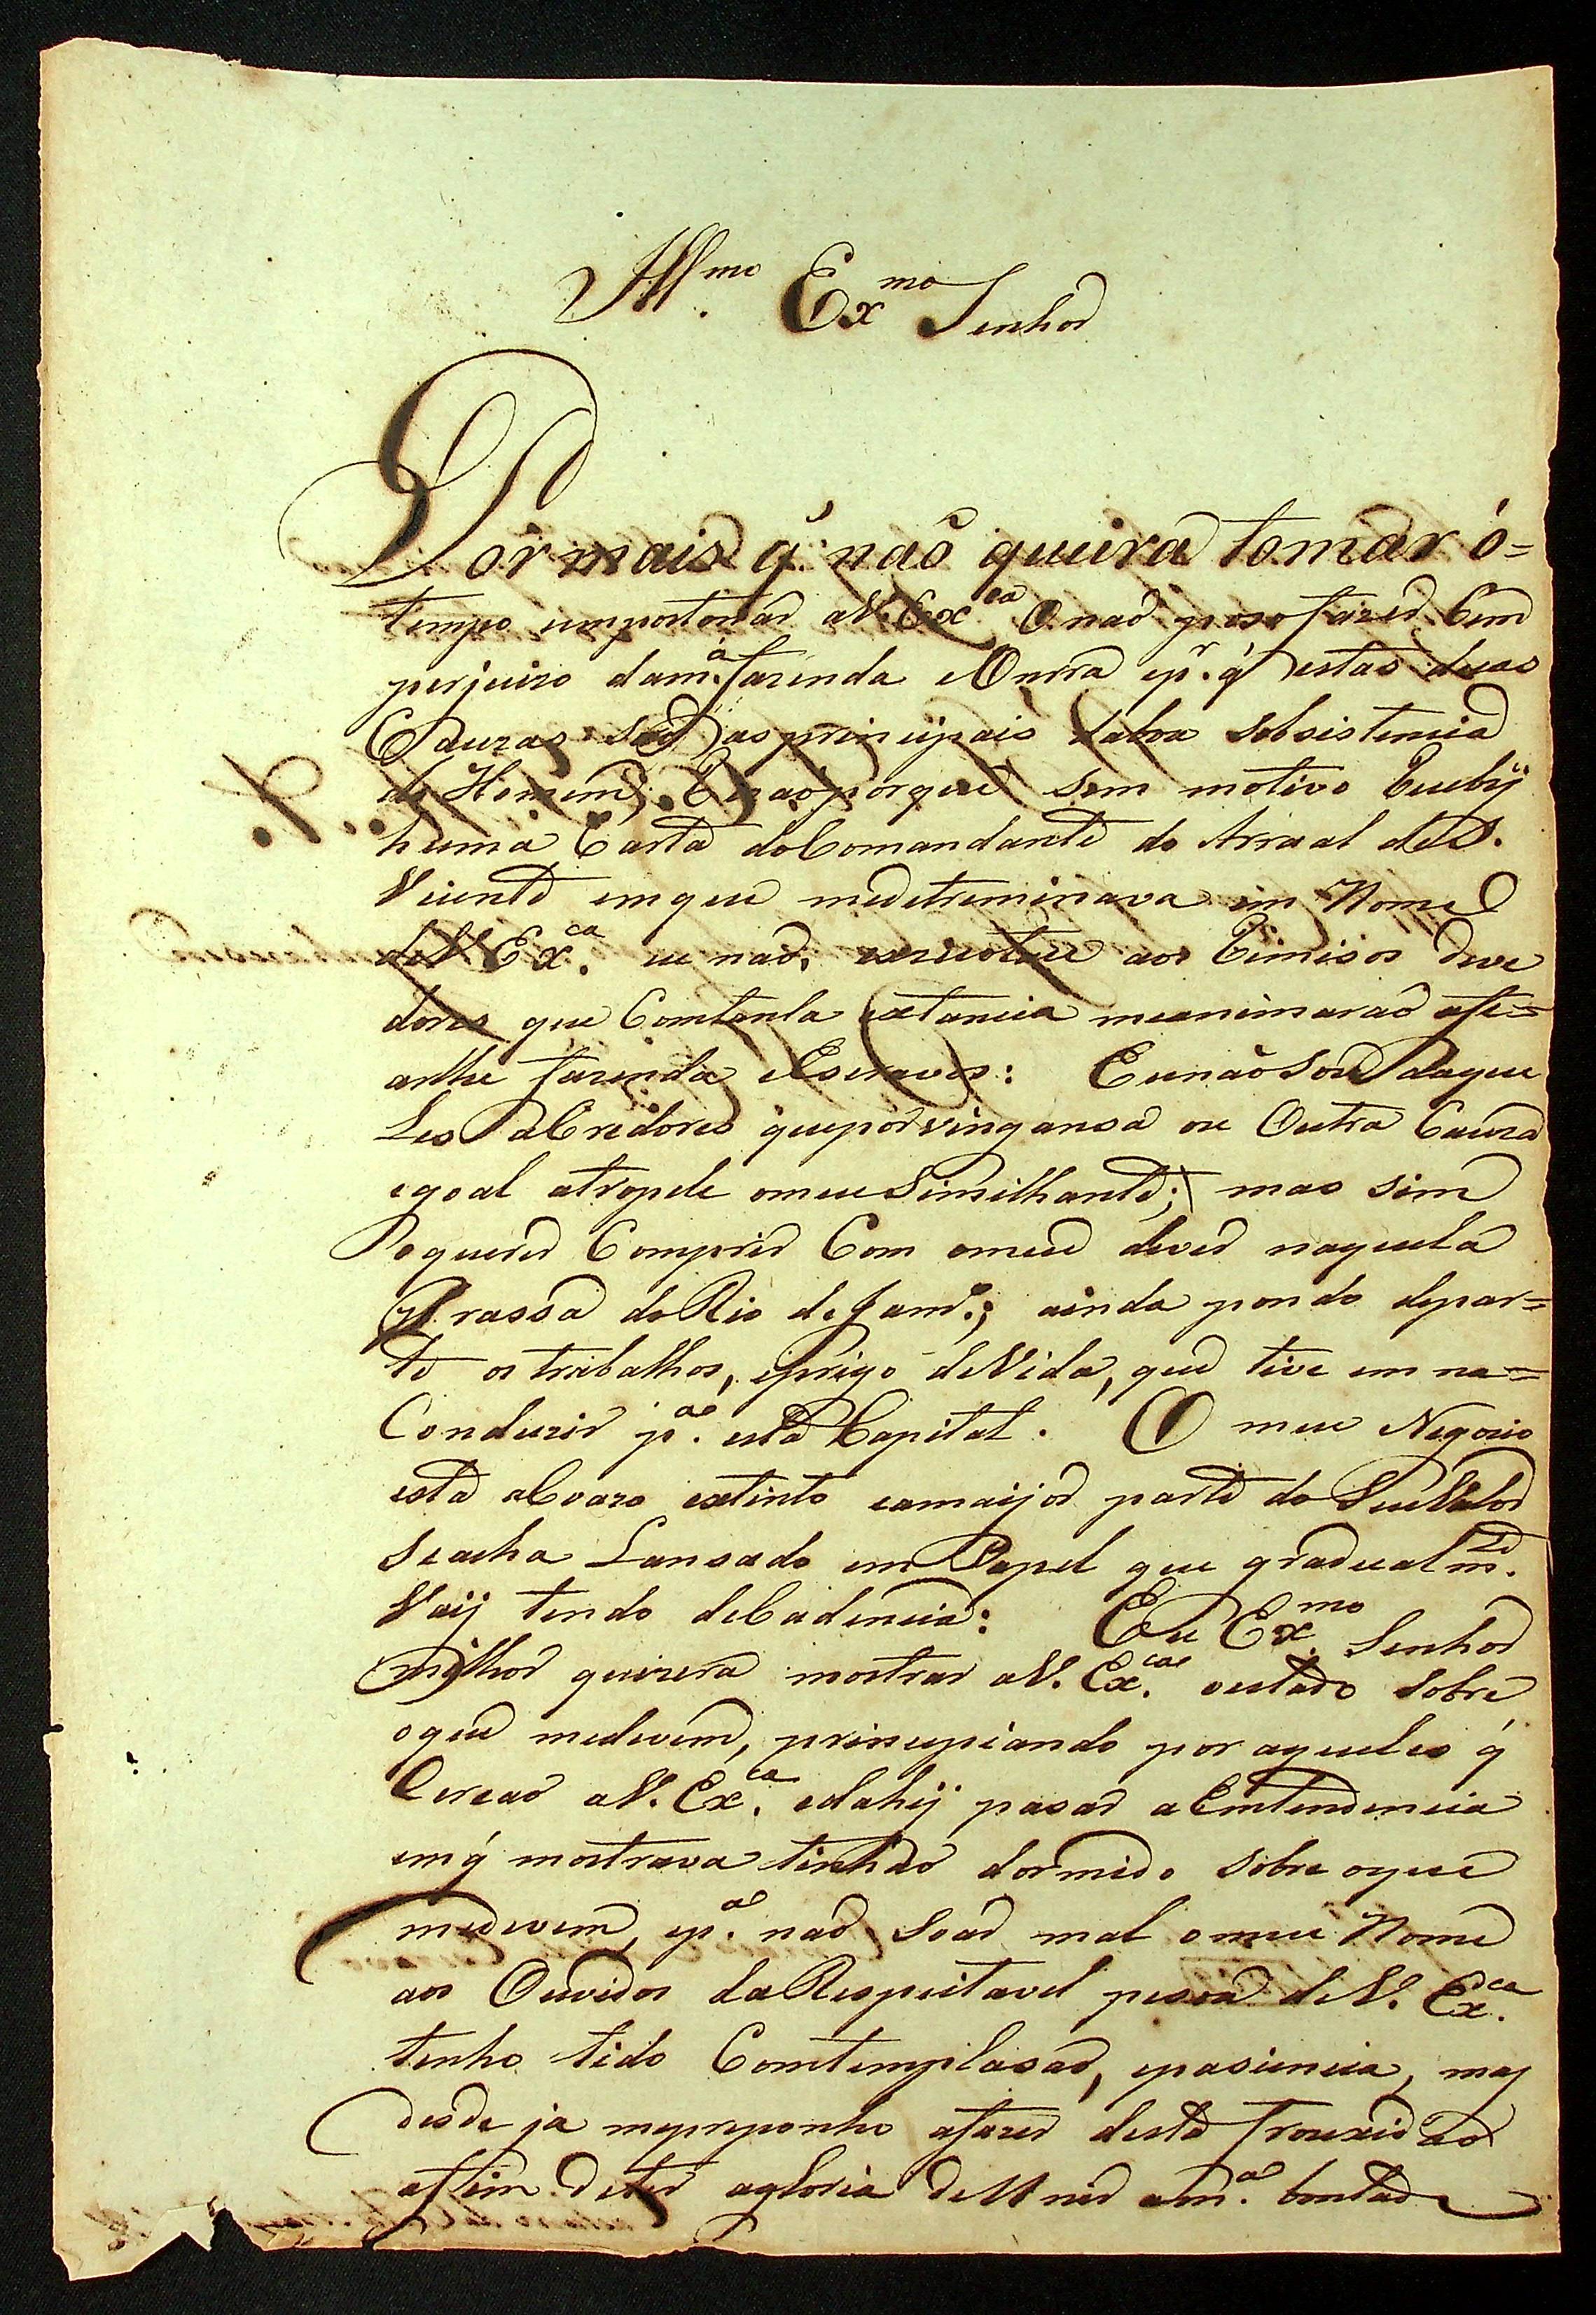 Illmo. Exmo. Senhor
Por mais q̃ não queira tomar ó=
tempo emportonar a V. Exca. O não poso fazer Cem
perjuizo da ma. fazenda e Onrra e pr. q̃ estas duas
Cauzas são as prinsipais da boa sobsistencia
do Homem; E não porque sem motivo Recebij
huma Carta do Comandante do Arraal de S.
Vicente em que me detreminava em Nome
de V. Exca. eu não, execotase aos Remisos deve
dores que Com tanta extancia me animarão afe=
arlhe fazenda e Escravos: Eu não sou daque
Les aCredores que por vingansa ou Outra Cauza
egoal atropele o meu Similhante; mas sim
Po querer Comprir Com o meu dever naquela
Prassa do Rio de Janro.; ainda pondo de par=
te os trabalhos, e prigo de Vida, que tive em na=
Conduzir pa. esta Capital. O meu Negocio
está aCoazo extinto e a maijor parte do Seu Valor
Se acha Lansado em Papel que gradualmte.
Vaij tendo deCadencia: Eu Exmo. Senhor
milhor quizera mostrar a V. Exca. o estado sobre
o que me devem, prinsipiando por aqueles q̃
Cercão a V. Exca. e dahij pasar a Entendencia
em q̃ mostrava tinhão dormido sobre o que
me devem, e pa. não Soar mal o meu Nome
aos Ouvidos da Respeitavel pesoa de V. Exca.
tenho tido Comtemplasão, e pasiencia, mas
desde ja me preponho a fazer desta frouxidão
a fim de ter a gloria de Unir a ma. bontade